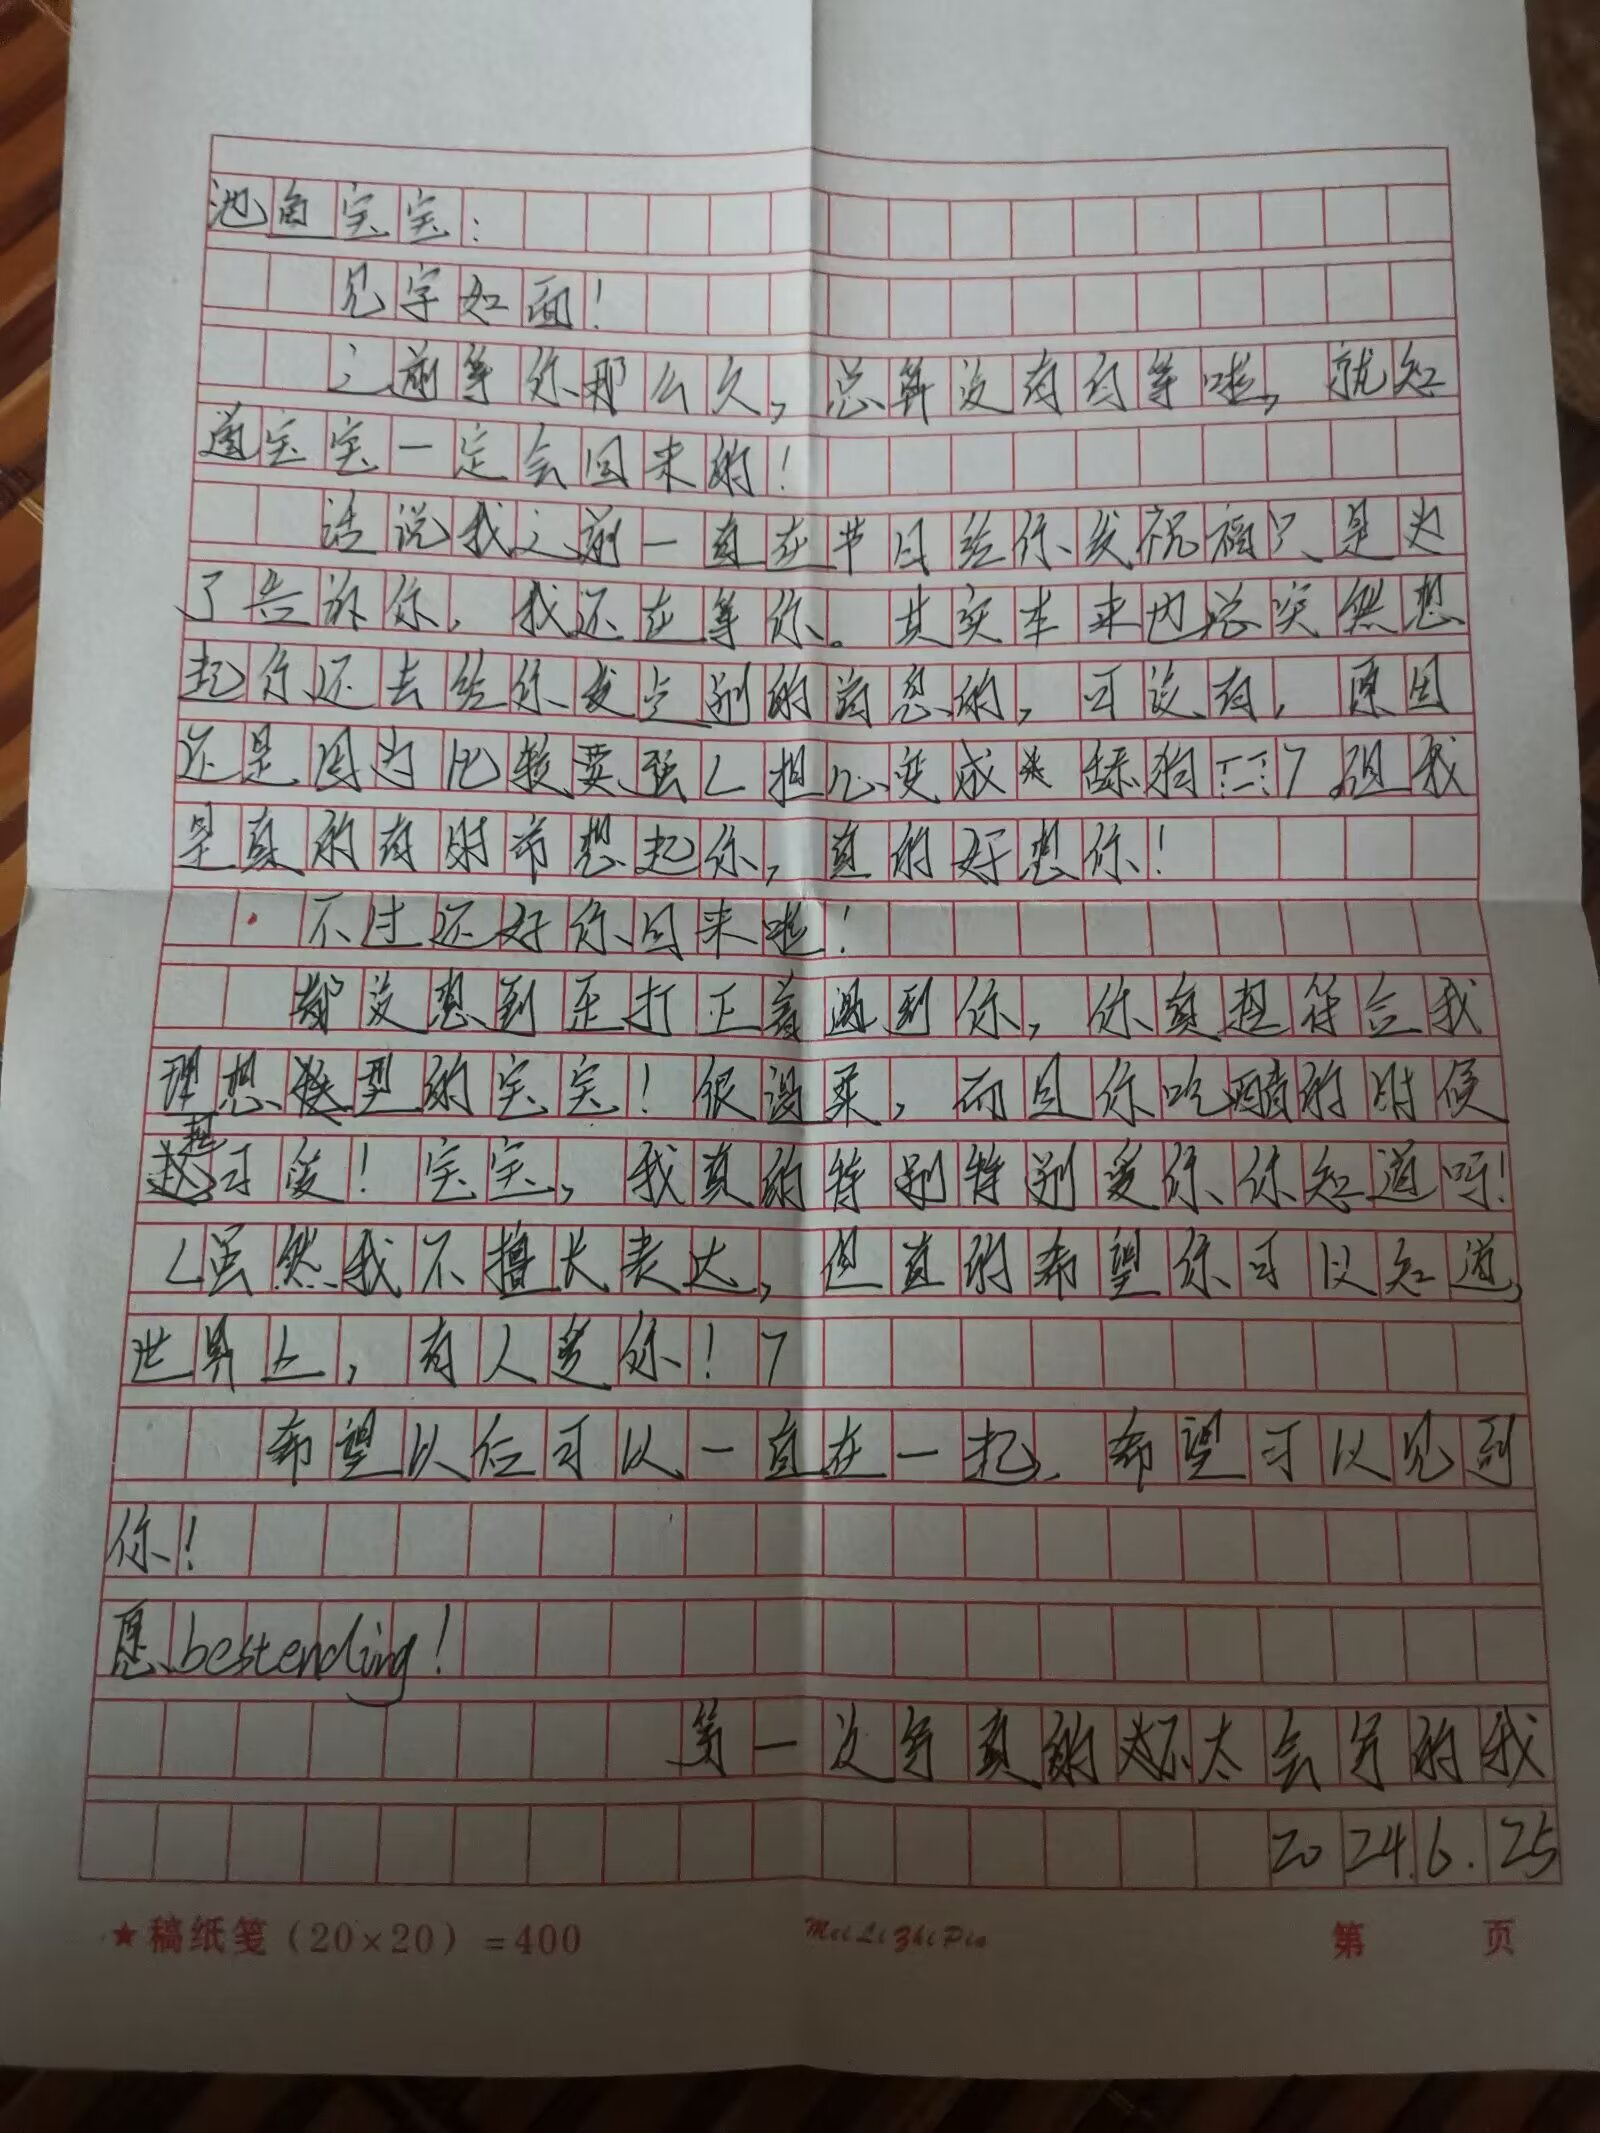 池鱼宝宝：
见字如面！
之前等你那么久，总算没有白等啦，就知
道宝宝一定会回来的！
话说我之前一直在节日给你发祝福只是为
了告诉你，我还在等你。其实本来内总突然想
起你还去给你发点别的消息的，可没有，原因
还是因为比较要强（担心变成舔狗）。但我
是真的有时常想起你，真的好想你！
不过还好你回来啦！
都没想到歪打正着遇到你，你真超符合我
理想型的宝宝！很温柔，而且你吃醋的时候
超可爱！宝宝，我真的特别特别爱你你知道吗！
（虽然我不擅长表达，但真的希望你可以知道，
世界上，有人爱你！）
希望以后可以一直在一起，希望可以见到
你！
愿bestending！
第一次写真的不太会写的我
2024.6.25
★稿纸笺（20×20）＝400
MeiLiZhiPin
第 页